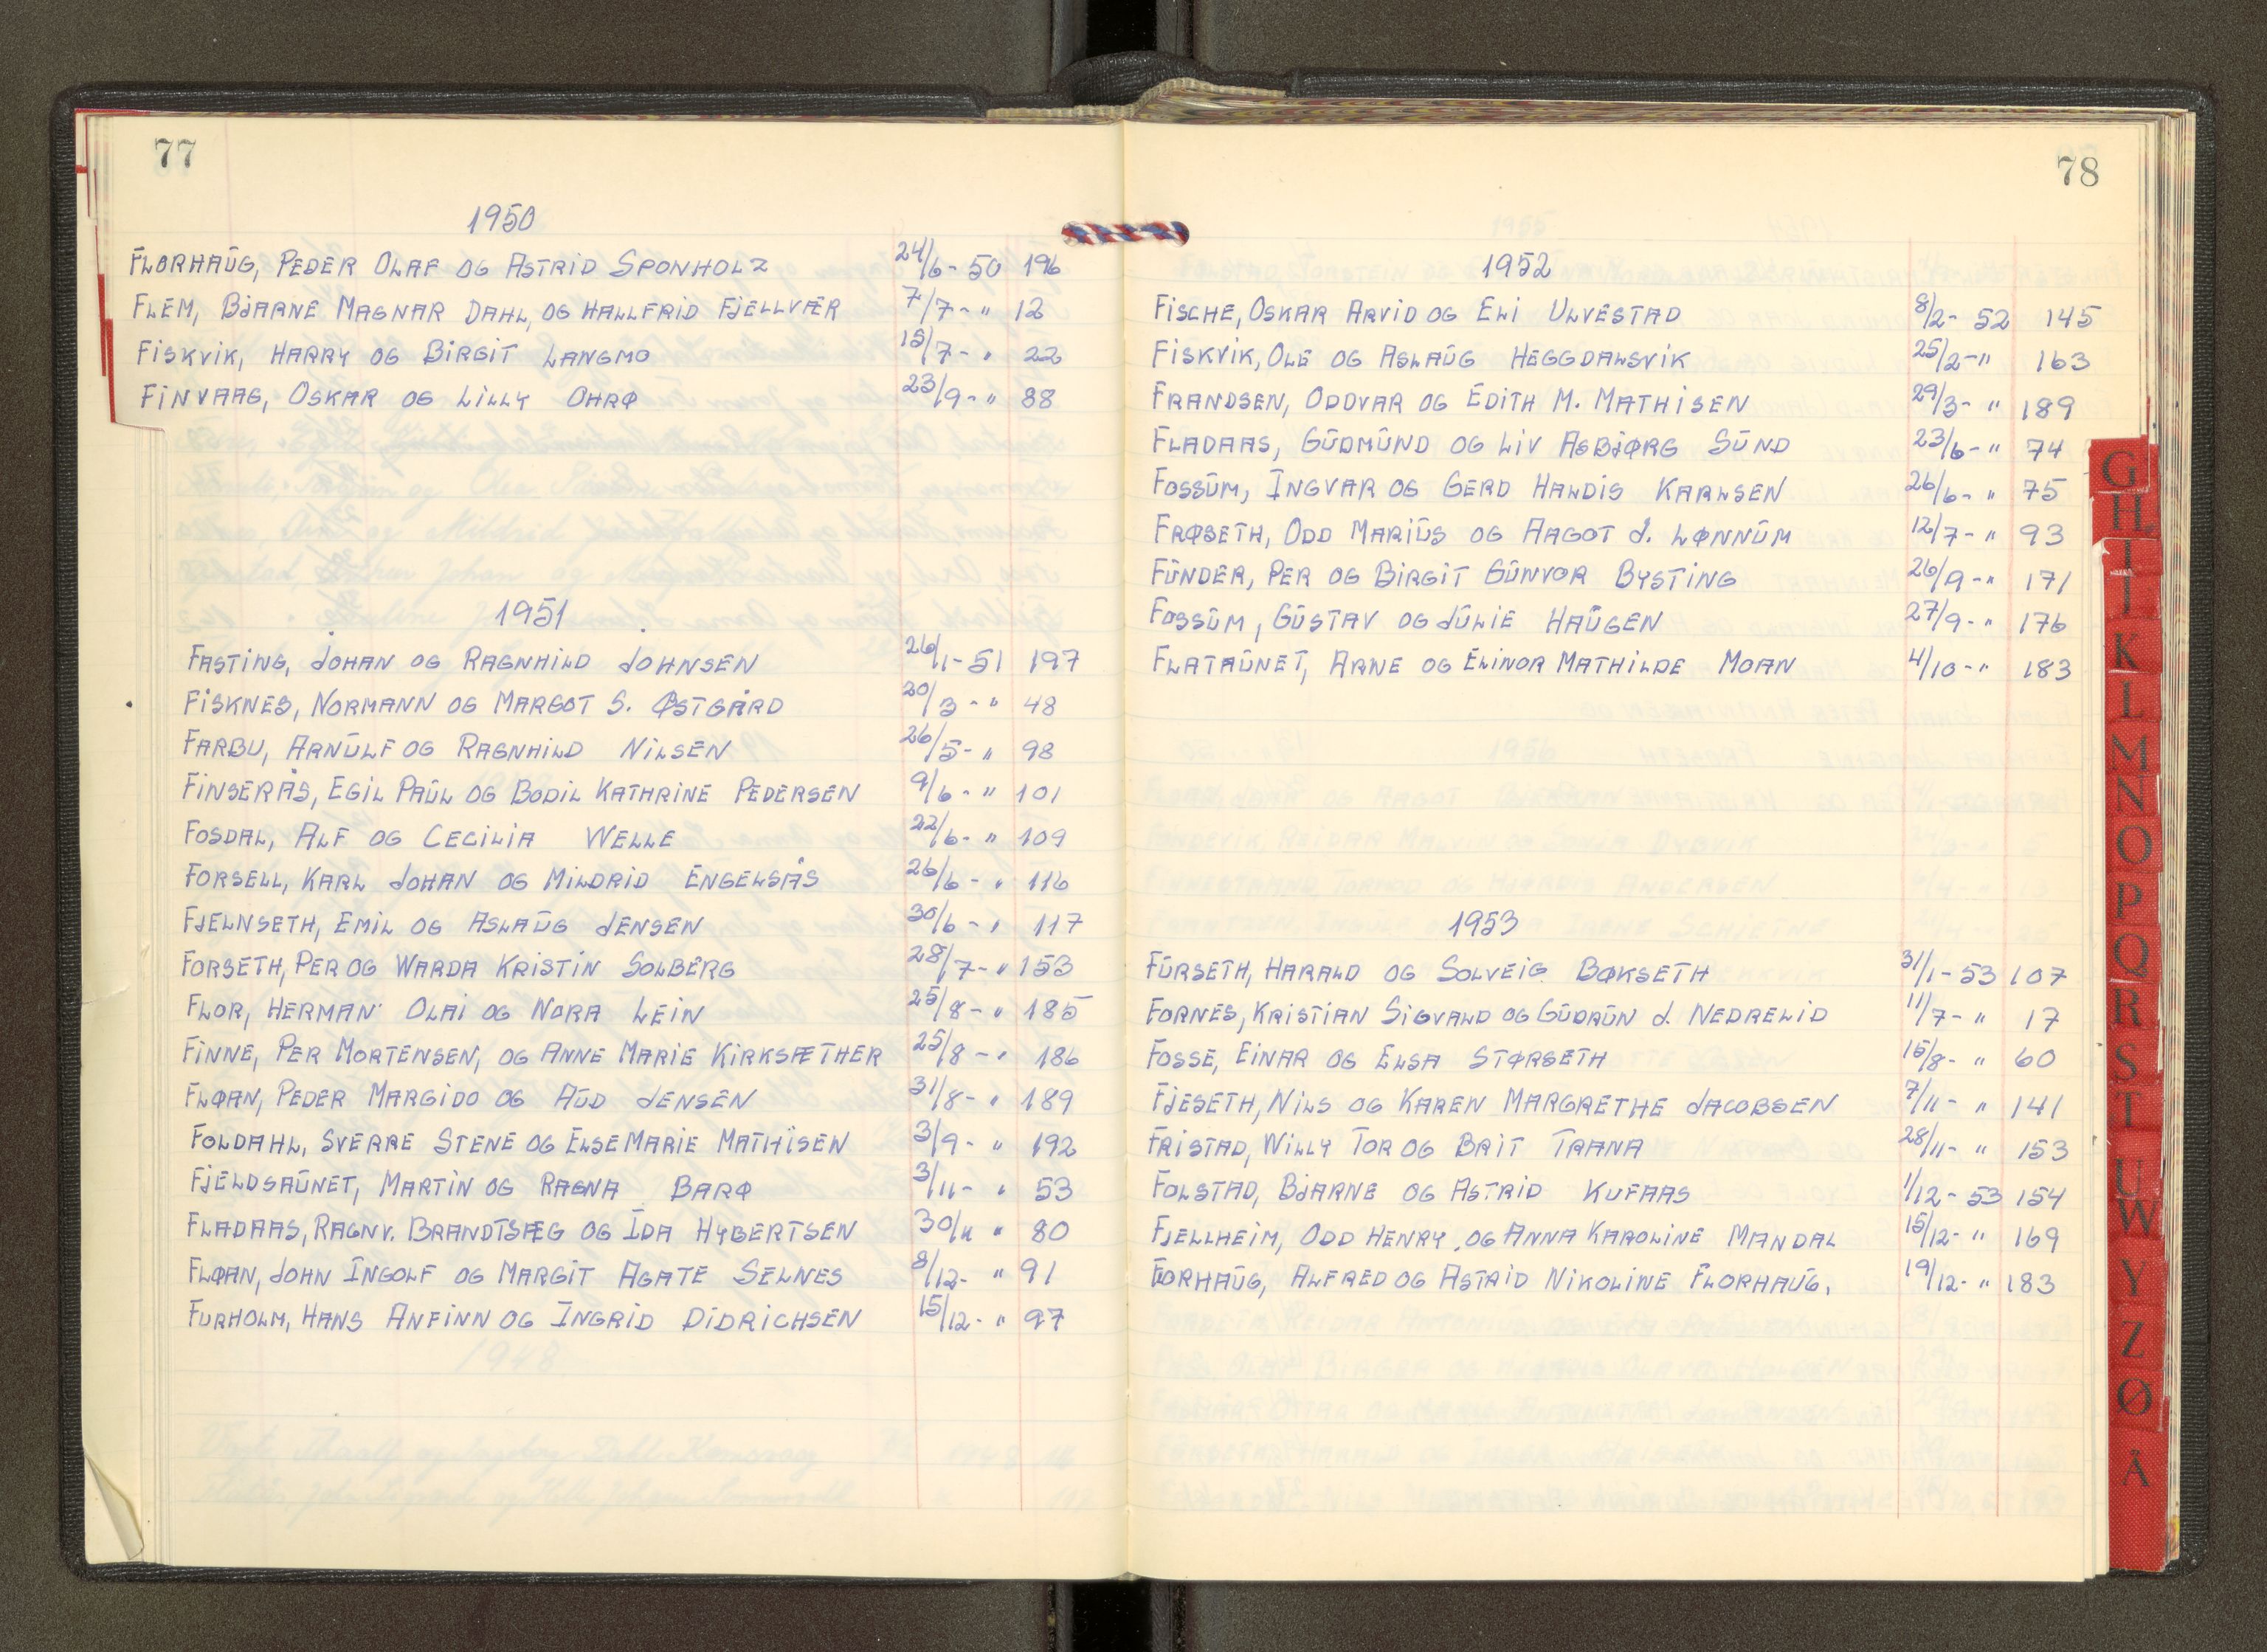 77
1950
FLORHAUG, PEDER OLAF OG ASTRID SPONHOLZ 24/6- 50 196
FLEM, BJARNE MAGNAR DAHL, OG HALLFRID FJELLVÆR 7/7- " 12
FISKVIK, HARRY OG BIRGIT LANGMO 15/7- " 22
FINVAAG, OSKAR OG LILLY OHRØ 23/9- " 88
1951
FASTING, JOHAN OG RAGNHILD JOHNSEN 26/1- 51 197
FISKNES, NORMANN OG MARGOT S. ØSTGÅRD 20/3 - " 48
FARBU, ARNULF OG RAGNHILD NILSEN 26/5- " 98
FINSERÅS, EGIL PAUL OG BODIL KATHRINE PEDERSEN 9/6- " 101
FOSDAL, ALF OG CECILIA WELLE 22/6- " 109
FORSELL, KARL JOHAN OG MILDRID ENGELSÅS 26/6- " 116
FJELNSETH, EMIL OG ASLAUG JENSEN 30/6 - " 117
FORSETH, PER OG WARDA KRISTIN SOLBERG 28/7- " 153
FLOR, HERMAN OLAI OG NORA LEIN 25/8- " 185
FINNE, PER MORTENSEN, OG ANNE MARIE KIRKSÆTHER 25/8 - " 186
FLØAN, PEDER MARGIDO OG AUD JENSEN 31/8- " 189
FOLDAHL, SVERRE STENE OG ELSE MARIE MATHISEN 3/9- " 192
FJELDSAUNET, MARTIN OG RAGNA BARØ 3/11- " 53
FLADAAS, RAGNV. BRANDTSÆG OG IDA HYBERTSEN 30/11 " 80
FLØAN, JOHN INGOLF OG MARGIT AGATE SELNES 8/12- " 91
FURHOLM, HANS ANFINN OG INGRID DIDRICHSEN 15/12- " 97
78
1952
FISCHE, OSKAR ARVID OG ELI ULVESTAD 8/2- 52 145
FISKVIK, OLE OG ASLAUG HEGGDALSVIK 25/2- " 163
FRANDSEN, ODDVAR OG EDITH M. MATHISEN 29/3- " 189
FLADAAS, GUDMUND OG LIV ASBJØRG SUND 23/6- " 74
FOSSUM, INGVAR OG GERD HALDIS KARLSEN 26/6- " 75
FRØSETH, ODD MARIUS OG AAGOT J. LØNNUM 12/7- " 93
FUNDER, PER OG BIRGIT GUNVOR BYSTING 26/9- " 171
FOSSUM, GUSTAV OG JULIE HAUGEN 27/9- " 176
FLATAUNET, ARNE OG ELINOR MATHILDE MOAN 4/10- " 183
1953
FURSETH, HARALD OG SOLVEIG BØKSETH 31/1- 53 107
FORNES, KRISTIAN SIGVALD OG GUDRUN J. NEDRELID 11/7- " 17
FOSSE, EINAR OG ELSA STØRSETH 15/8- " 60
FJESETH, NILS OG KAREN MARGRETHE JACOBSEN 7/11- " 141
FRISTAD, WILLY TOR OG BRIT TRANA 28/11- " 153
FOLSTAD, BJARNE OG ASTRID KUFAAS 1/12- 53 154
FJELLHEIM, ODD HENRY. OG ANNA KAROLINE MANDAL 15/12- " 169
FORHAUG, ALFRED OG ASTRID NIKOLINE FLORHAUG. 19/12- " 183
G
H
I
J
K
L
M
N
O
P
Q
R
S
T
U
W
Y
Z
Ø
Å